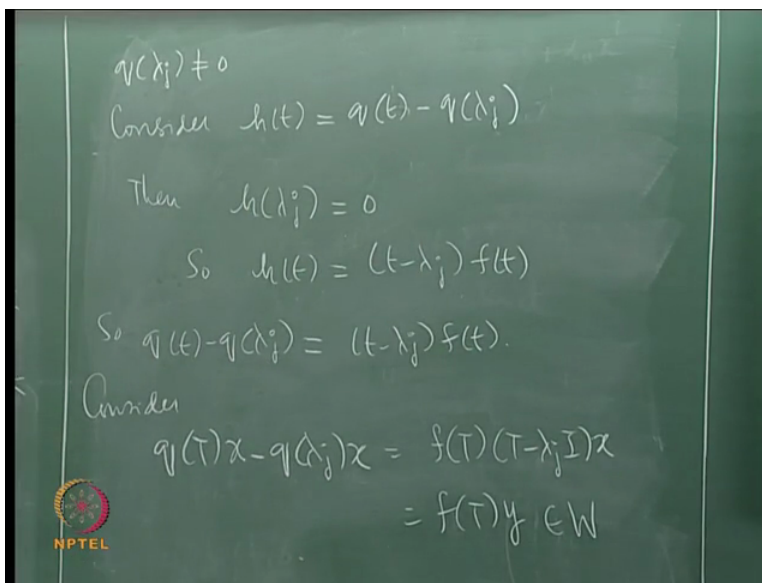 q(λj) ≠ 0
Consider h(t) = q(t) - q(λj)
Then h(λj) = 0
So h(t) = (t-λj) f(t)
So q(t)-q(λj) = (t-λj) f(t).
Consider
q(T)x - q(λj)x = f(T)(T-λjI)x
= f(T)y ∈ W
NPTEL